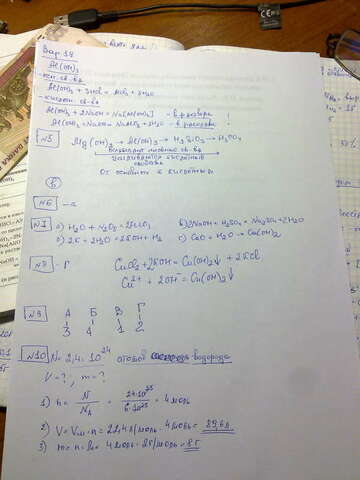 Вар 38
Al(OH)3
Al(OH)3 + 3HCl = AlCl3 + 3H2O
- кислот. св-ва
Al(OH)3 + 2NaOH = Na[Al(OH)4] - в растворе
Al(OH)3 + NaOH = NaAlO2 + 2H2O - в расплаве
N5
Mg(OH)2 → Al(OH)3 → H2SiO3 → H3PO4
усиливаются кислотные
свойства
От основных к кислотным
N6 - а
N7 а) H2O + N2O5 = 2HNO3
в) 2NaOH + H2SO4 = Na2SO4 + 2H2O
б) 2K + 2H2O = 2KOH + H2
с) CaO + H2O → Ca(OH)2
- Г
CuCl2 + 2KOH = Cu(OH)2↓ + 2KCl
Cu2+ + 2OH- = Cu(OH)2↓
N9 А Б В Г
3 4 1 2
N10 N = 2,4 · 10^24 атомов водорода
V = ?, m = ?
1) n = N/NA = 24·10^23/6·10^23 = 4 моль
2) V = Vм · n = 22,4 л/моль · 4 моль = 89,6 л
3) m = n · M = 4 моль · 2 г/моль = 8 г